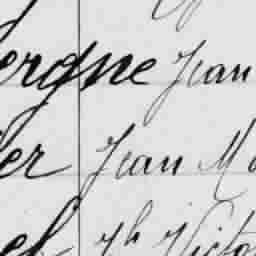 ergne Jean
er Jean M
el Jh Victo